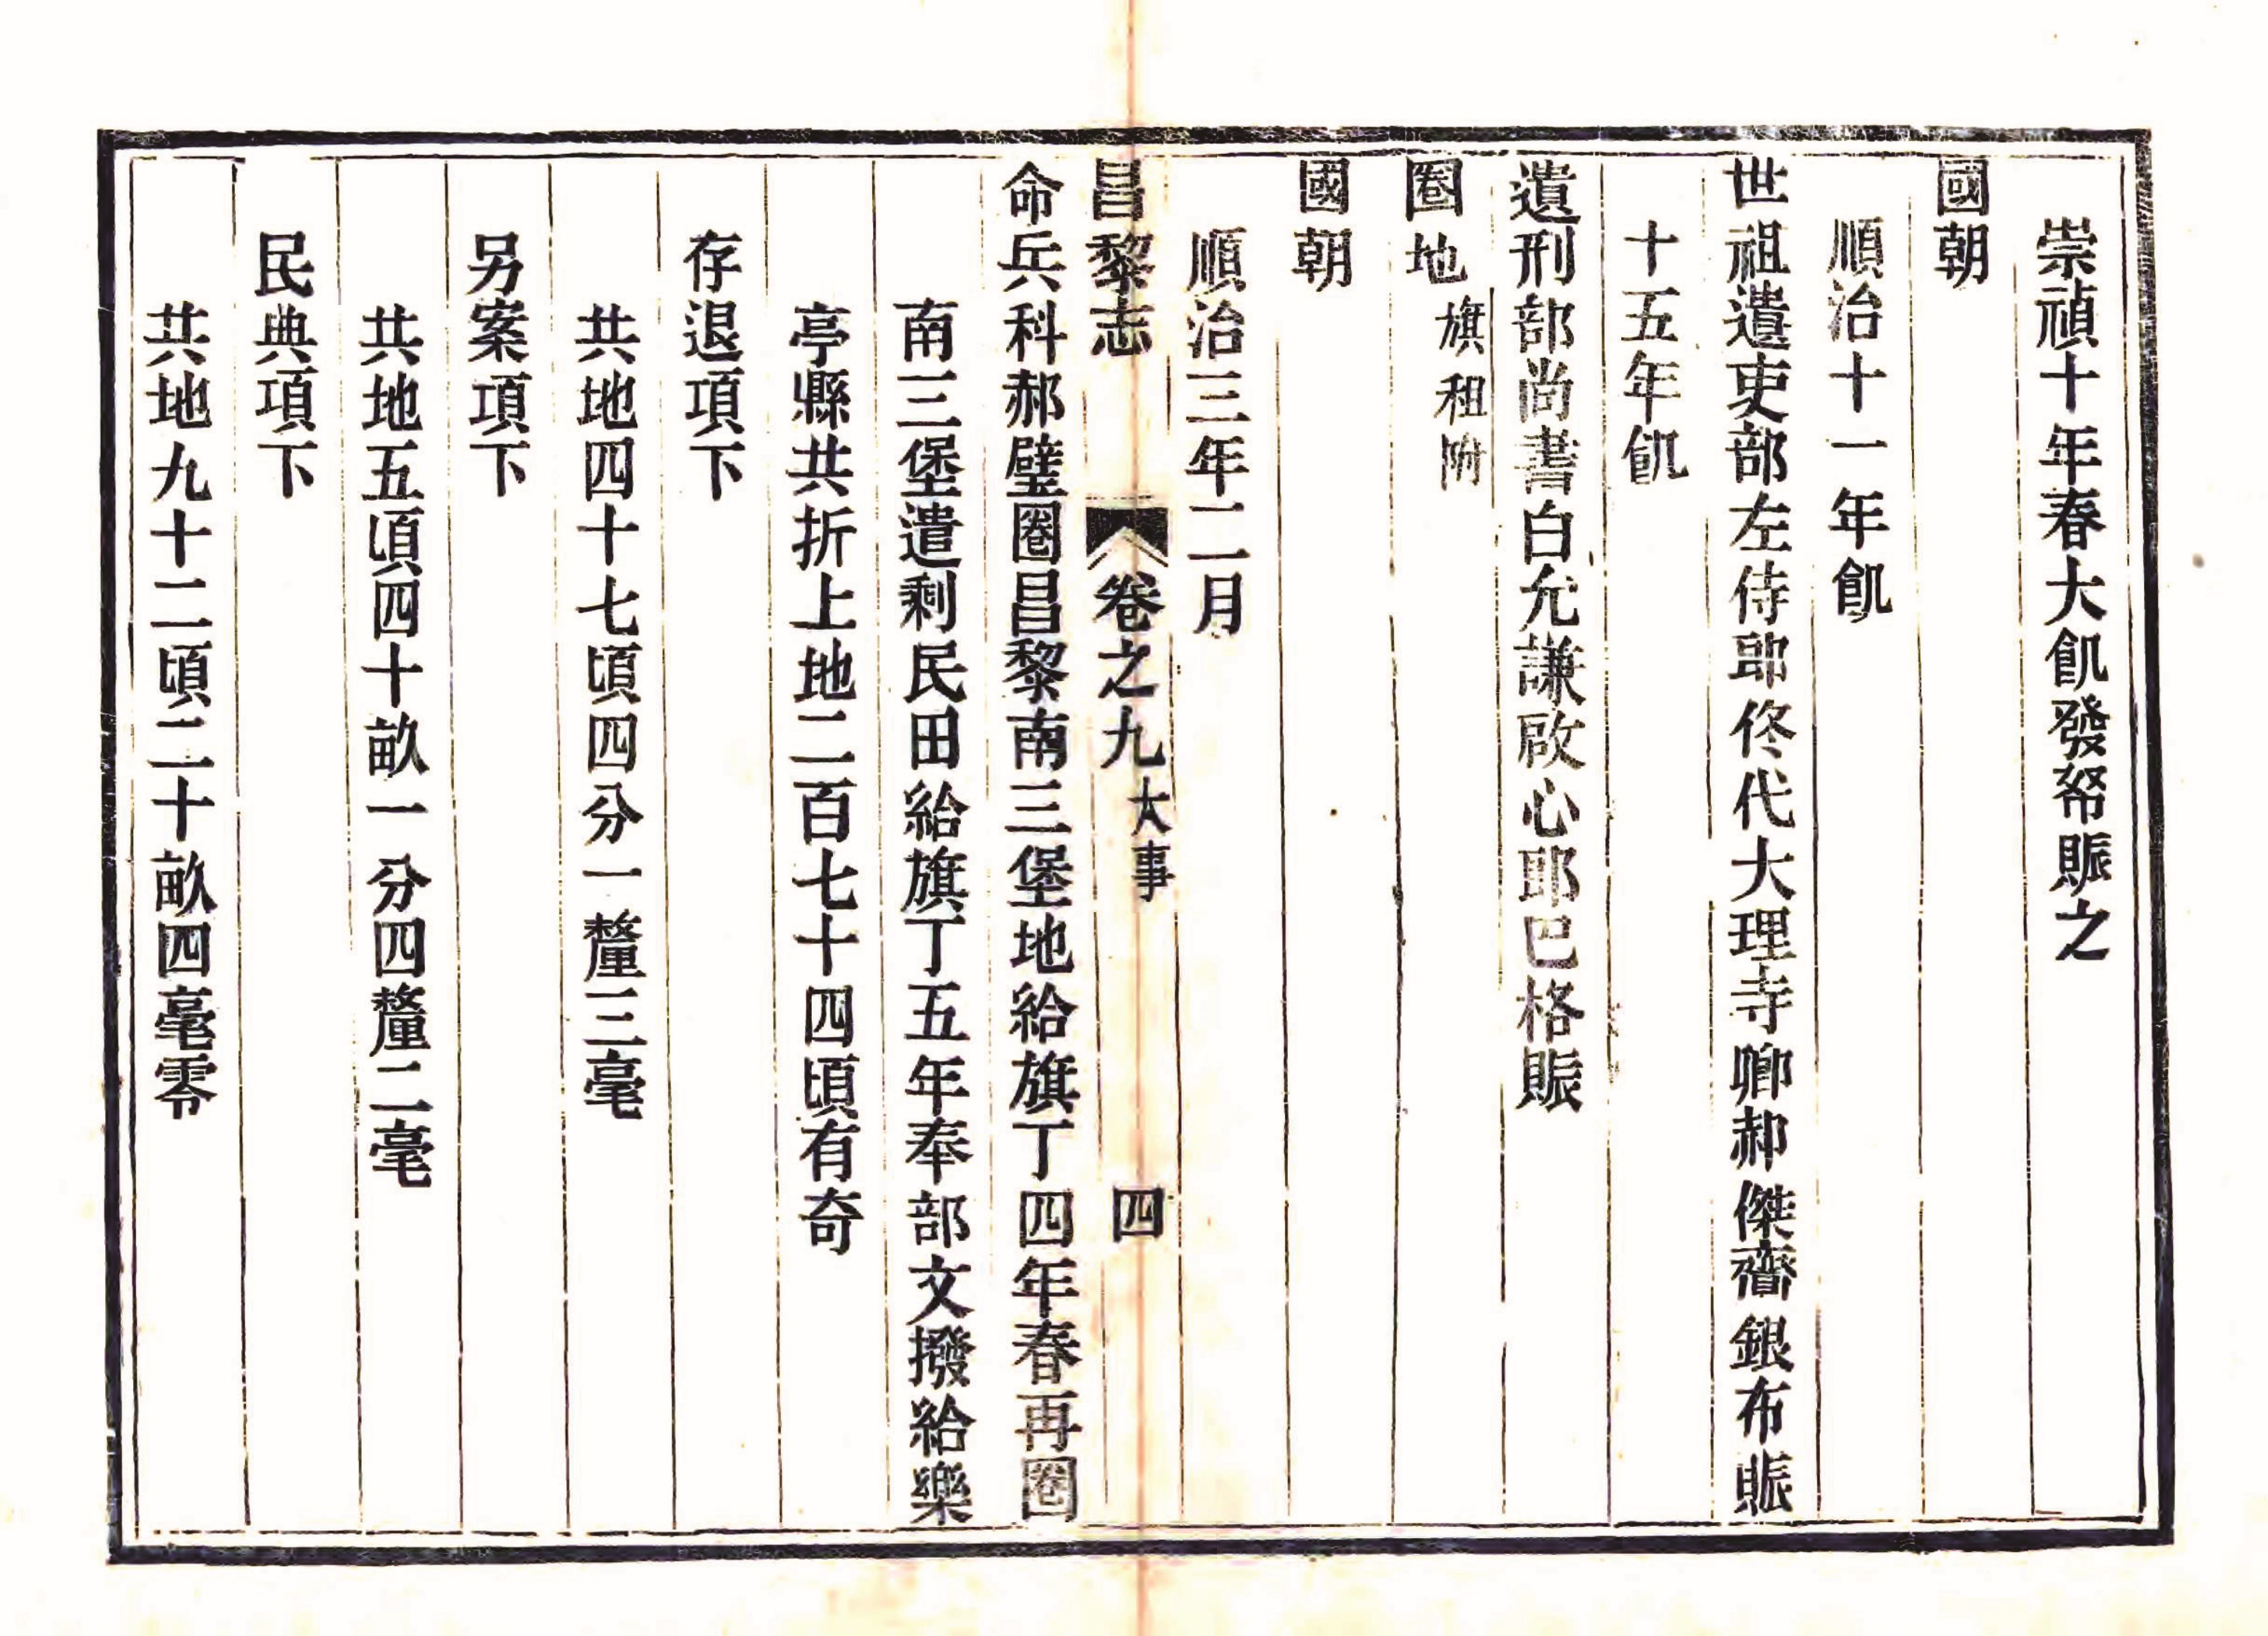 崇禎十年春大飢發帑賑之
國朝
順治十一年飢
世祖遣吏部左侍郎佟代大理寺卿郝傑齎銀布賑
十五年飢
遣刑部尚書白允謙啟心郎巴格賑
圈地 旗租附
國朝
順治三年二月
昌黎志 卷之九 大事 四
命兵科郝璧圈昌黎南三堡地給旗丁四年春再圈
南三堡遣剩民田給旗丁五年奉部文撥給樂
亭縣共折上地二百七十四頃有奇
存退項下
共地四十七頃四分一釐三毫
另案項下
共地五頃四十畝一分四釐二毫
民典項下
共地九十二頃二十畝四毫零